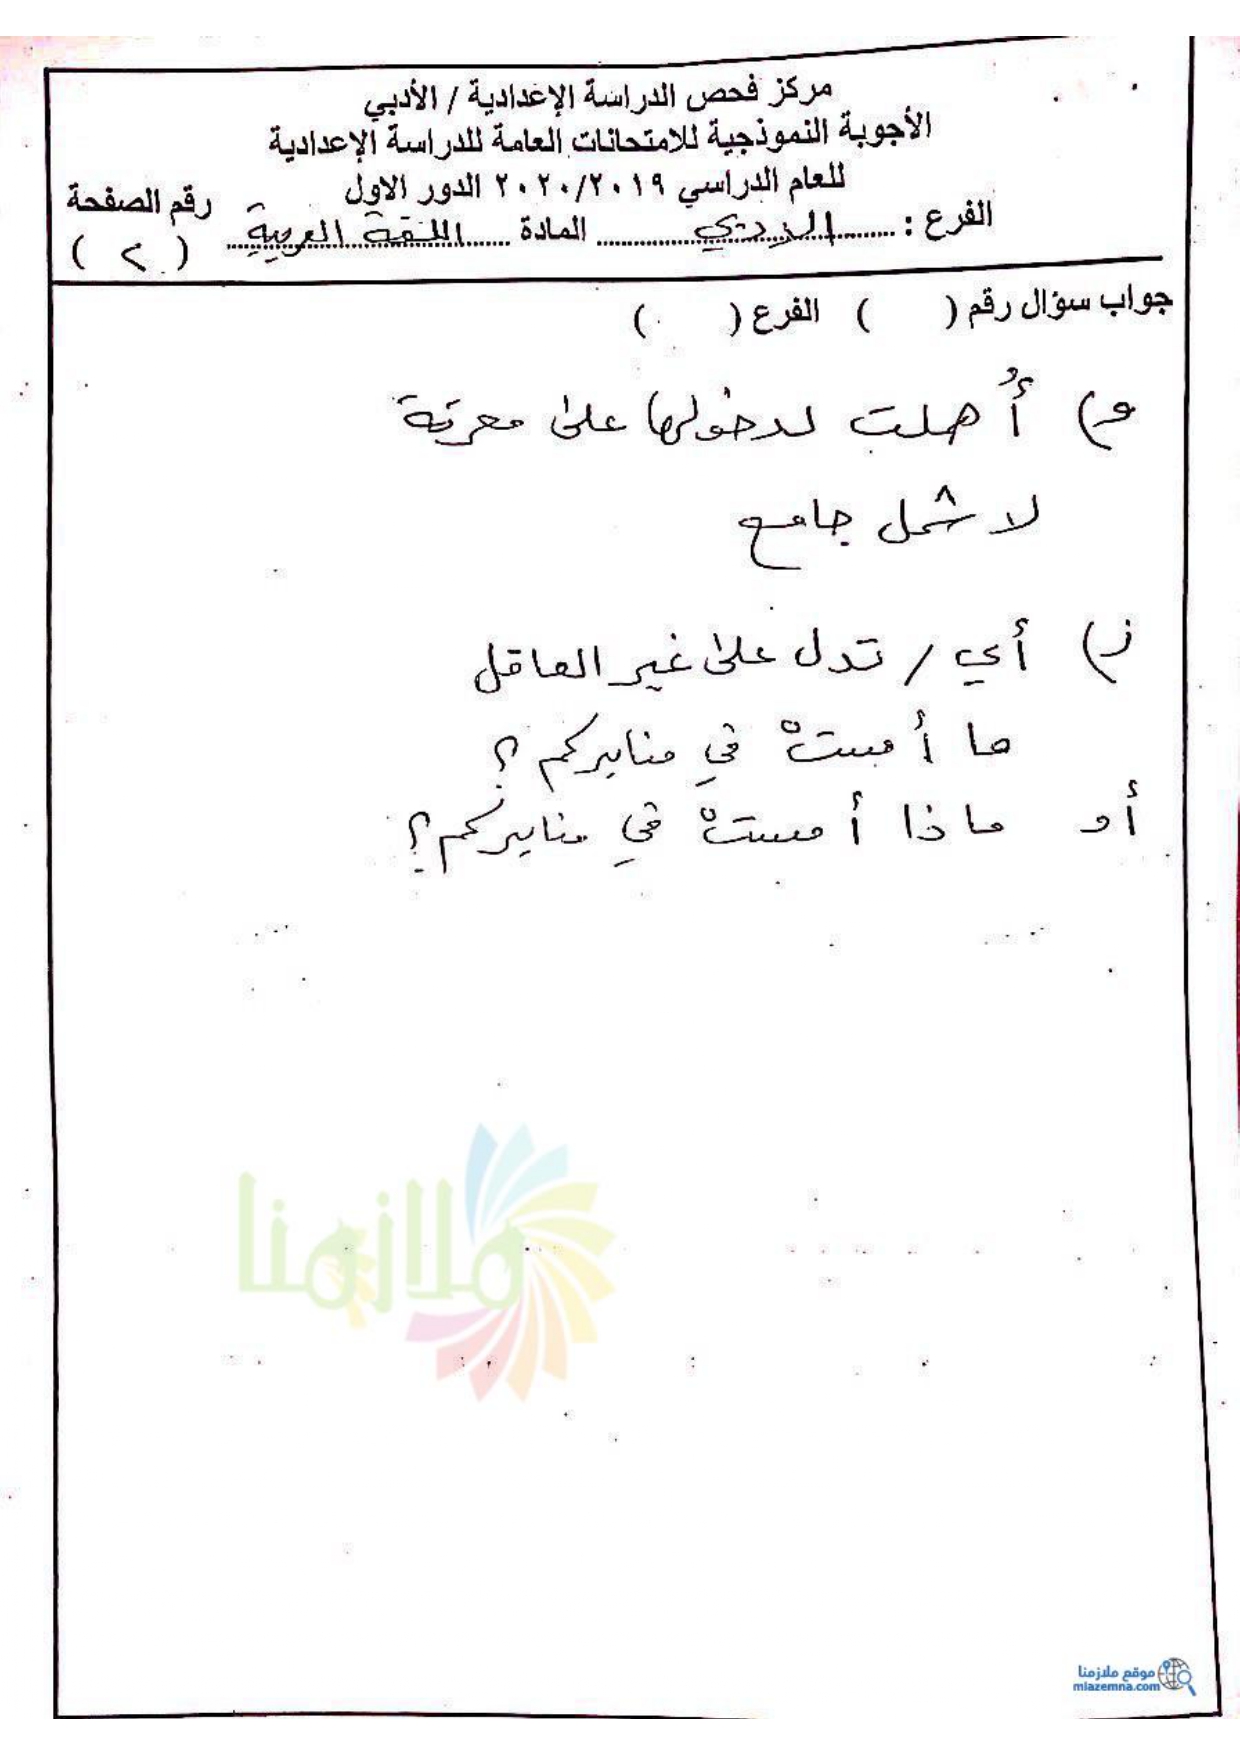 مركز فحص الدراسة الإعدادية / الأدبي
الأجوبة النموذجية للامتحانات العامة للدراسة الإعدادية
للعام الدراسي ٢٠٢٠/٢٠١٩ الدور الاول
الفرع : الادبي المادة اللغة العربية رقم الصفحة ( ٢ )
جواب سؤال رقم ( ) الفرع ( )
و) أُهملت لدخولها على معرفة
لا شمل جامع
ز) أي / تدل على غير العاقل
ما أمستْ في منابركم ؟
أو ماذا أمستْ في منابركم ؟
ملازمنا
موقع ملازمنا
mlazemna.com